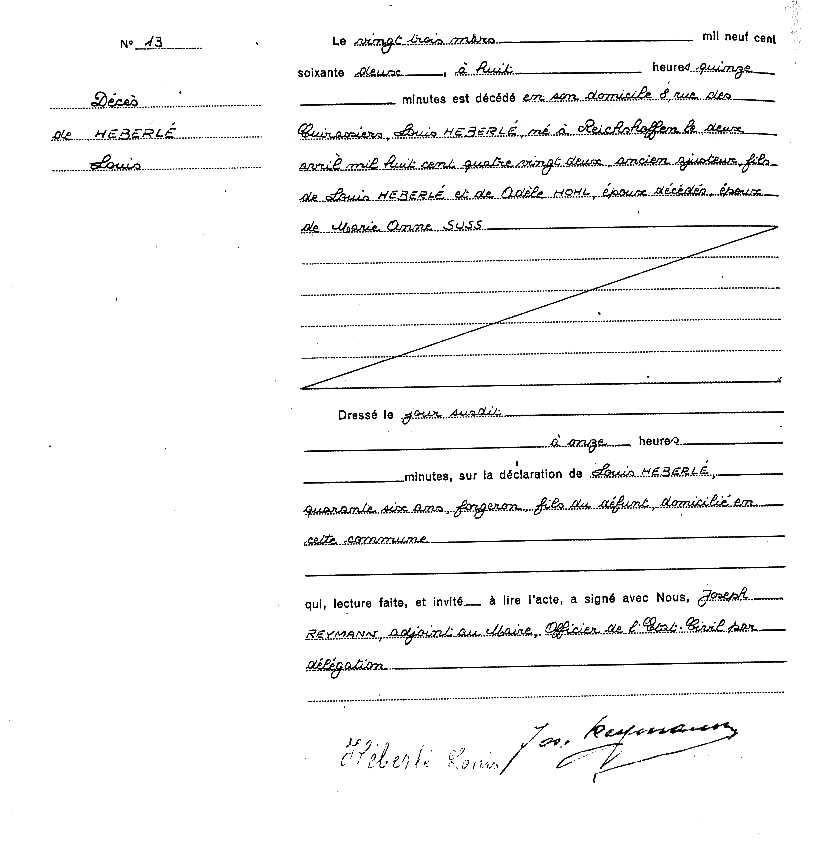 N° 13
Décès
de HEBERLÉ
Louis
Le vingt trois mars mil neuf cent
soixante deux, à huit heures quinze
minutes est décédé en son domicile 8, rue des
Cuirassiers, Louis HEBERLÉ, né à Reichshoffen le deux
avril mil huit cent quatre vingt deux, ancien ajusteur, fils
de Louis HEBERLÉ et de Adèle HOHL, époux décédés, époux
de Marie Anne SUSS
Dressé le jour susdit
à onze heures
minutes, sur la déclaration de Louis HEBERLÉ,
quarante six ans, forgeron, fils du défunt, domicilié en
cette commune
qui, lecture faite, et invité à lire l'acte, a signé avec Nous, Joseph
REYMANN, adjoint au Maire, Officier de l'Etat-Civil par
délégation
Héberlé Louis
Jos. Reymann